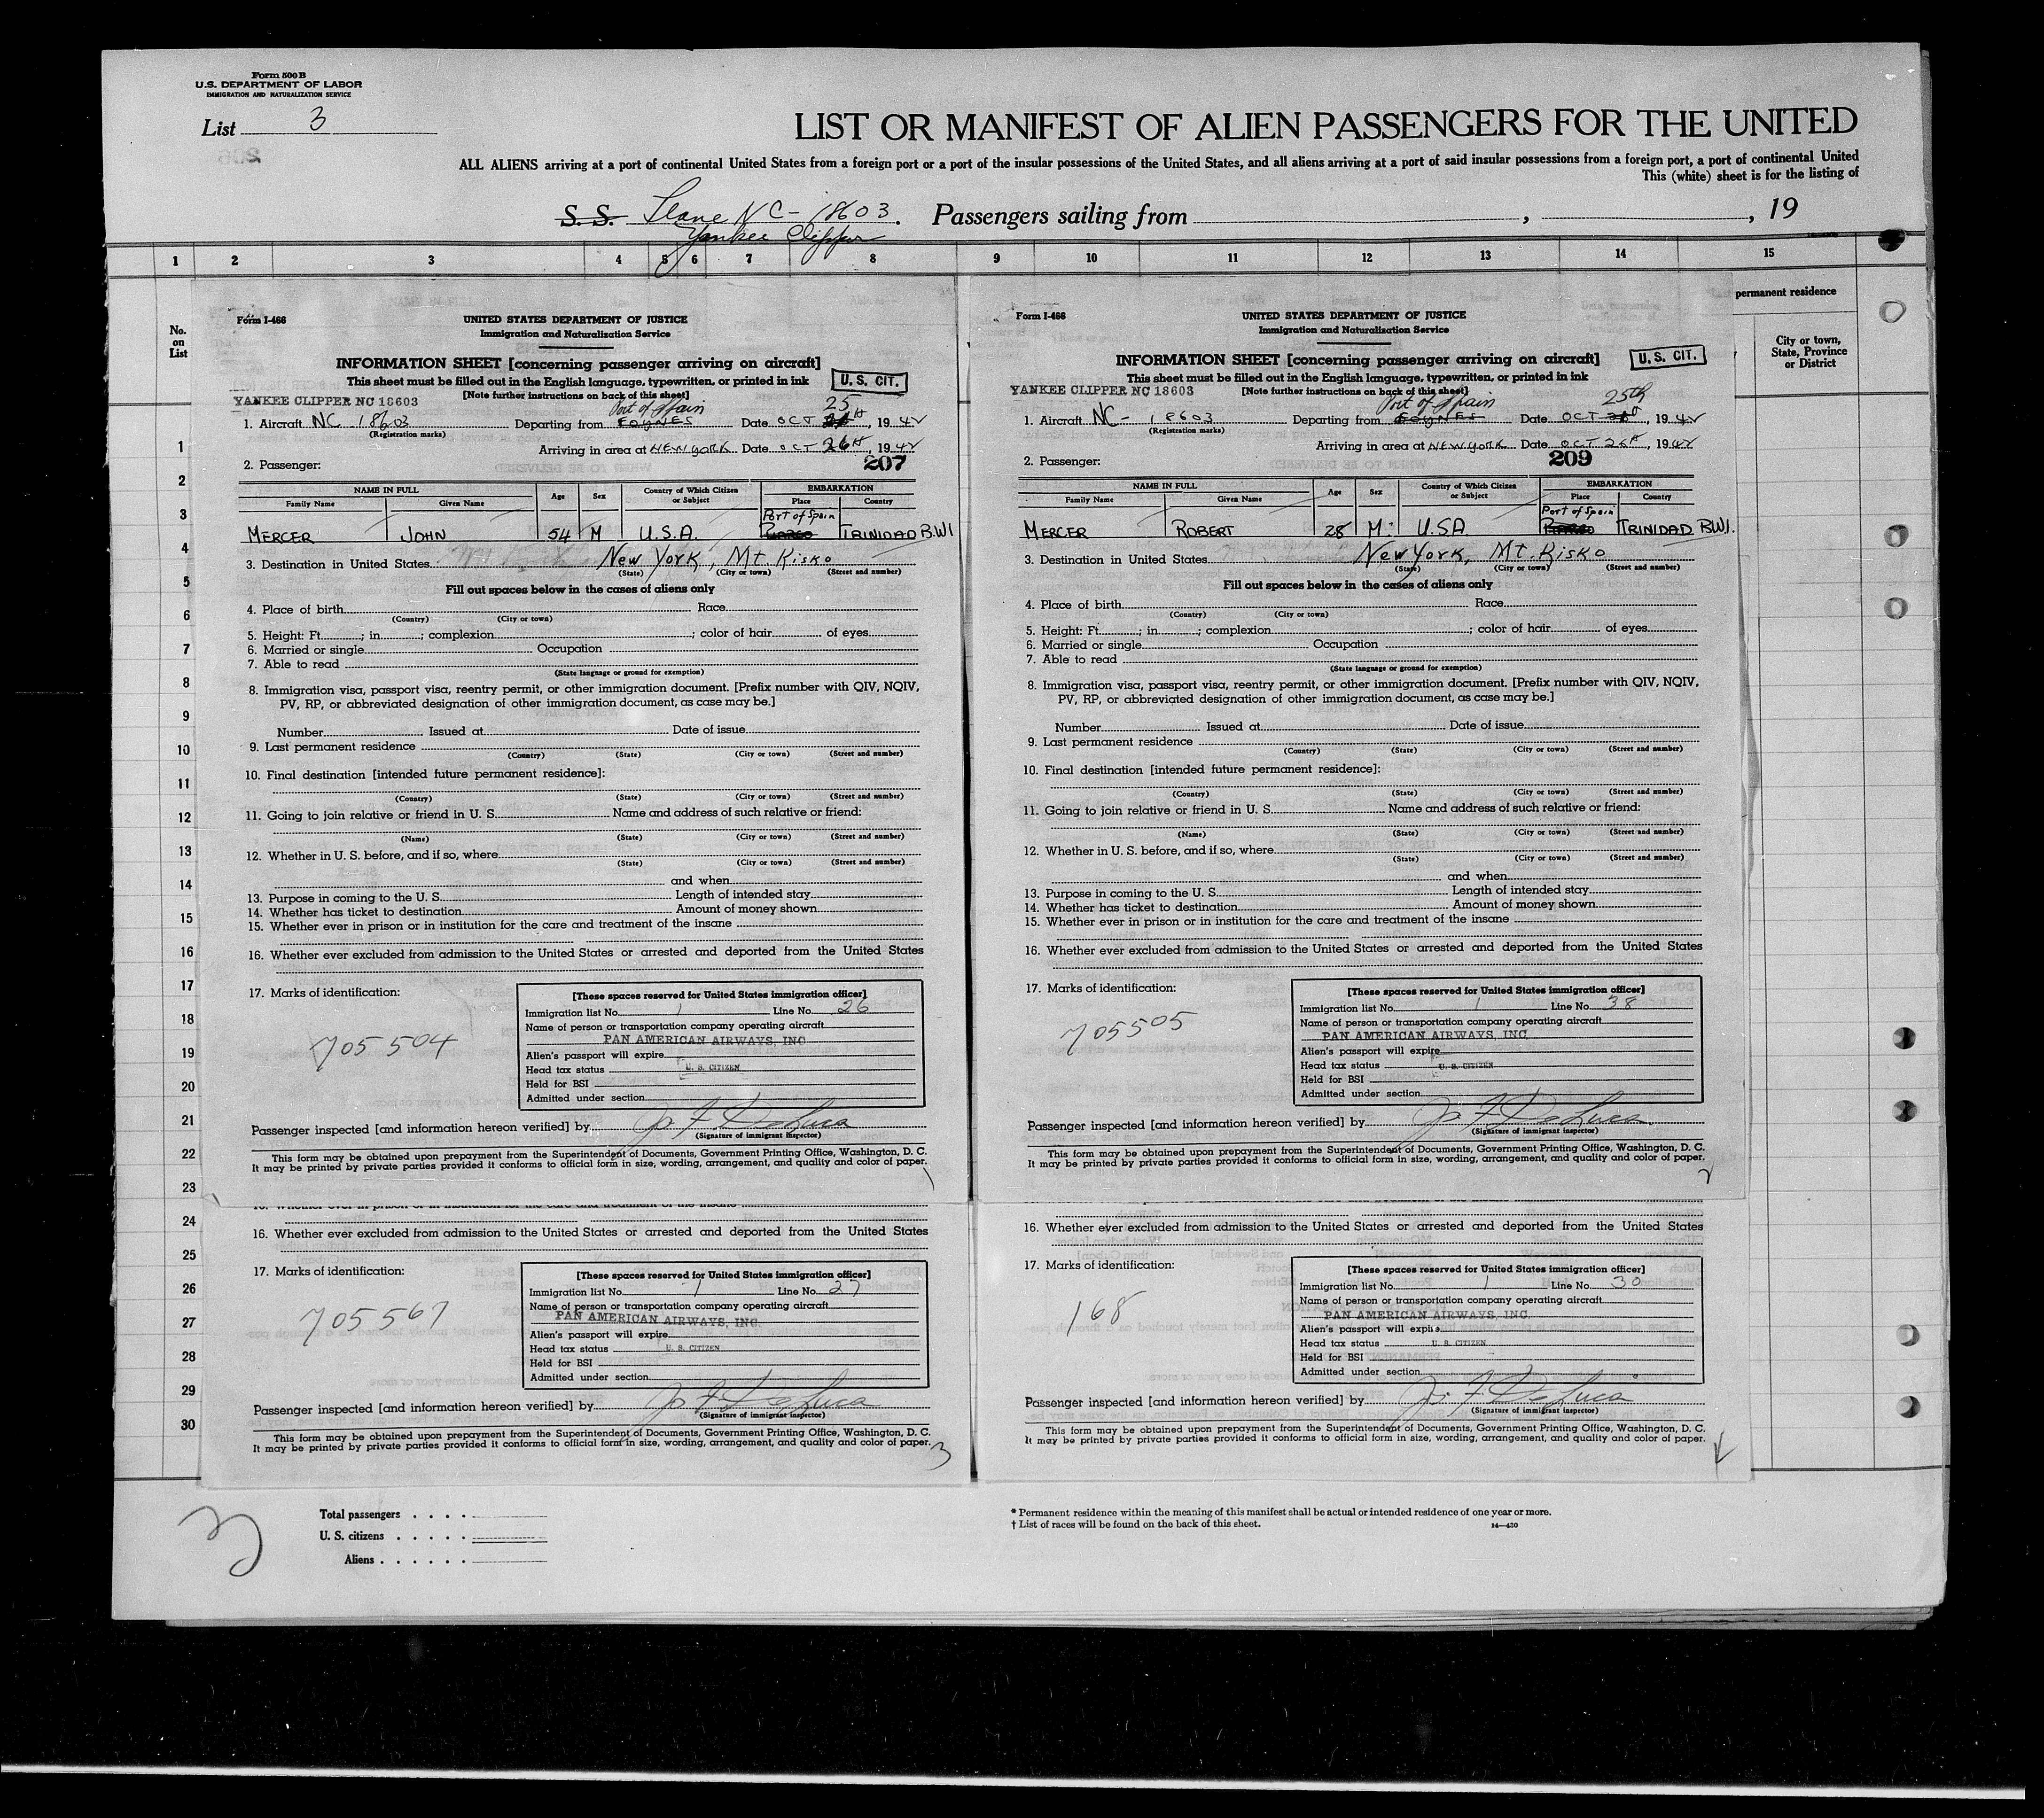 Form 500 B
U.S. DEPARTMENT OF LABOR
IMMIGRATION AND NATURALIZATION SERVICE
List 3
LIST OR MANIFEST OF ALIEN PASSENGERS FOR THE UNITED
ALL ALIENS arriving at a port of continental United States from a foreign port or a port of the insular possessions of the United States, and all aliens arriving at a port of said insular possessions from a foreign port, a port of continental United
This (white) sheet is for the listing of
S. S. Plane NC-18603. Passengers sailing from , , 19
Yankee Clipper
1 2 3 4 5 6 7 8 9 10 11 12 13 14 15
No. on List
permanent residence
City or town, State, Province or District
1
2
3
4
5
6
7
8
9
10
11
12
13
14
15
16
17
18
19
20
21
22
23
24
25
26
27
28
29
30
Form I-466
UNITED STATES DEPARTMENT OF JUSTICE
Immigration and Naturalization Service
INFORMATION SHEET [concerning passenger arriving on aircraft]
This sheet must be filled out in the English language, typewritten, or printed in ink
U. S. CIT.
[Note further instructions on back of this sheet]
YANKEE CLIPPER NC 18603
Port of Spain 25
1. Aircraft NC 18603 Departing from FOYNES Date OCT th, 1942
(Registration marks)
Arriving in area at NEW YORK Date OCT 26th, 1942
2. Passenger:
207
NAME IN FULL Age Sex Country of Which Citizen or Subject EMBARKATION
Family Name Given Name Place Country
Port of Spain
MERCER JOHN 54 M U.S.A. TRINIDAD B.W.I
3. Destination in United States New York, Mt. Kisko
(State) (City or town) (Street and number)
Fill out spaces below in the cases of aliens only
4. Place of birth Race
(Country) (City or town)
5. Height: Ft. ; in. ; complexion ; color of hair of eyes
6. Married or single Occupation
7. Able to read
(State language or ground for exemption)
8. Immigration visa, passport visa, reentry permit, or other immigration document. [Prefix number with QIV, NQIV,
PV, RP, or abbreviated designation of other immigration document, as case may be.]
Number Issued at Date of issue
9. Last permanent residence
(Country) (State) (City or town) (Street and number)
10. Final destination [intended future permanent residence]:
(Country) (State) (City or town) (Street and number)
11. Going to join relative or friend in U. S. Name and address of such relative or friend:
(Name) (State) (City or town) (Street and number)
12. Whether in U. S. before, and if so, where
(State) (City or town) (Street and number)
and when
13. Purpose in coming to the U. S. Length of intended stay
14. Whether has ticket to destination Amount of money shown
15. Whether ever in prison or in institution for the care and treatment of the insane
16. Whether ever excluded from admission to the United States or arrested and deported from the United States
17. Marks of identification:
705504
[These spaces reserved for United States immigration officer]
Immigration list No. 1 Line No. 26
Name of person or transportation company operating aircraft
PAN AMERICAN AIRWAYS, INC
Alien's passport will expire
Head tax status U. S. CITIZEN
Held for BSI
Admitted under section
Passenger inspected [and information hereon verified] by Jo F DeLuca
(Signature of immigrant inspector)
This form may be obtained upon prepayment from the Superintendent of Documents, Government Printing Office, Washington, D. C.
It may be printed by private parties provided it conforms to official form in size, wording, arrangement, and quality and color of paper.
1
16. Whether ever excluded from admission to the United States or arrested and deported from the United States
17. Marks of identification:
705567
[These spaces reserved for United States immigration officer]
Immigration list No. 1 Line No. 27
Name of person or transportation company operating aircraft
PAN AMERICAN AIRWAYS, INC.
Alien's passport will expire
Head tax status U. S. CITIZEN
Held for BSI
Admitted under section
Passenger inspected [and information hereon verified] by Jo F DeLuca
(Signature of immigrant inspector)
This form may be obtained upon prepayment from the Superintendent of Documents, Government Printing Office, Washington, D. C.
It may be printed by private parties provided it conforms to official form in size, wording, arrangement, and quality and color of paper.
3
Form I-466
UNITED STATES DEPARTMENT OF JUSTICE
Immigration and Naturalization Service
INFORMATION SHEET [concerning passenger arriving on aircraft]
U. S. CIT.
This sheet must be filled out in the English language, typewritten, or printed in ink
[Note further instructions on back of this sheet]
YANKEE CLIPPER NC 18603
Port of Spain 25th
1. Aircraft NC-18603 Departing from FOYNES Date OCT , 1942
(Registration marks)
Arriving in area at NEW YORK Date OCT 26th, 1942
2. Passenger:
209
NAME IN FULL Age Sex Country of Which Citizen or Subject EMBARKATION
Family Name Given Name Place Country
Port of Spain
MERCER ROBERT 28 M. U.S.A TRINIDAD B.W.I.
3. Destination in United States New York, Mt. Kisko
(State) (City or town) (Street and number)
Fill out spaces below in the cases of aliens only
4. Place of birth Race
(Country) (City or town)
5. Height: Ft. ; in. ; complexion ; color of hair of eyes
6. Married or single Occupation
7. Able to read
(State language or ground for exemption)
8. Immigration visa, passport visa, reentry permit, or other immigration document. [Prefix number with QIV, NQIV,
PV, RP, or abbreviated designation of other immigration document, as case may be.]
Number Issued at Date of issue
9. Last permanent residence
(Country) (State) (City or town) (Street and number)
10. Final destination [intended future permanent residence]:
(Country) (State) (City or town) (Street and number)
11. Going to join relative or friend in U. S. Name and address of such relative or friend:
(Name) (State) (City or town) (Street and number)
12. Whether in U. S. before, and if so, where
(State) (City or town) (Street and number)
and when
13. Purpose in coming to the U. S. Length of intended stay
14. Whether has ticket to destination Amount of money shown
15. Whether ever in prison or in institution for the care and treatment of the insane
16. Whether ever excluded from admission to the United States or arrested and deported from the United States
17. Marks of identification:
705505
[These spaces reserved for United States immigration officer]
Immigration list No. 1 Line No. 38
Name of person or transportation company operating aircraft
PAN AMERICAN AIRWAYS, INC
Alien's passport will expire
Head tax status U. S. CITIZEN
Held for BSI
Admitted under section
Passenger inspected [and information hereon verified] by Jo F DeLuca
(Signature of immigrant inspector)
This form may be obtained upon prepayment from the Superintendent of Documents, Government Printing Office, Washington, D. C.
It may be printed by private parties provided it conforms to official form in size, wording, arrangement, and quality and color of paper.
2
16. Whether ever excluded from admission to the United States or arrested and deported from the United States
17. Marks of identification:
168
[These spaces reserved for United States immigration officer]
Immigration list No. 1 Line No. 30
Name of person or transportation company operating aircraft
PAN AMERICAN AIRWAYS, INC.
Alien's passport will expire
Head tax status U. S. CITIZEN
Held for BSI
Admitted under section
Passenger inspected [and information hereon verified] by Jo F DeLuca
(Signature of immigrant inspector)
This form may be obtained upon prepayment from the Superintendent of Documents, Government Printing Office, Washington, D. C.
It may be printed by private parties provided it conforms to official form in size, wording, arrangement, and quality and color of paper.
Total passengers
U. S. citizens
Aliens
* Permanent residence within the meaning of this manifest shall be actual or intended residence of one year or more.
† List of races will be found on the back of this sheet. 14—420